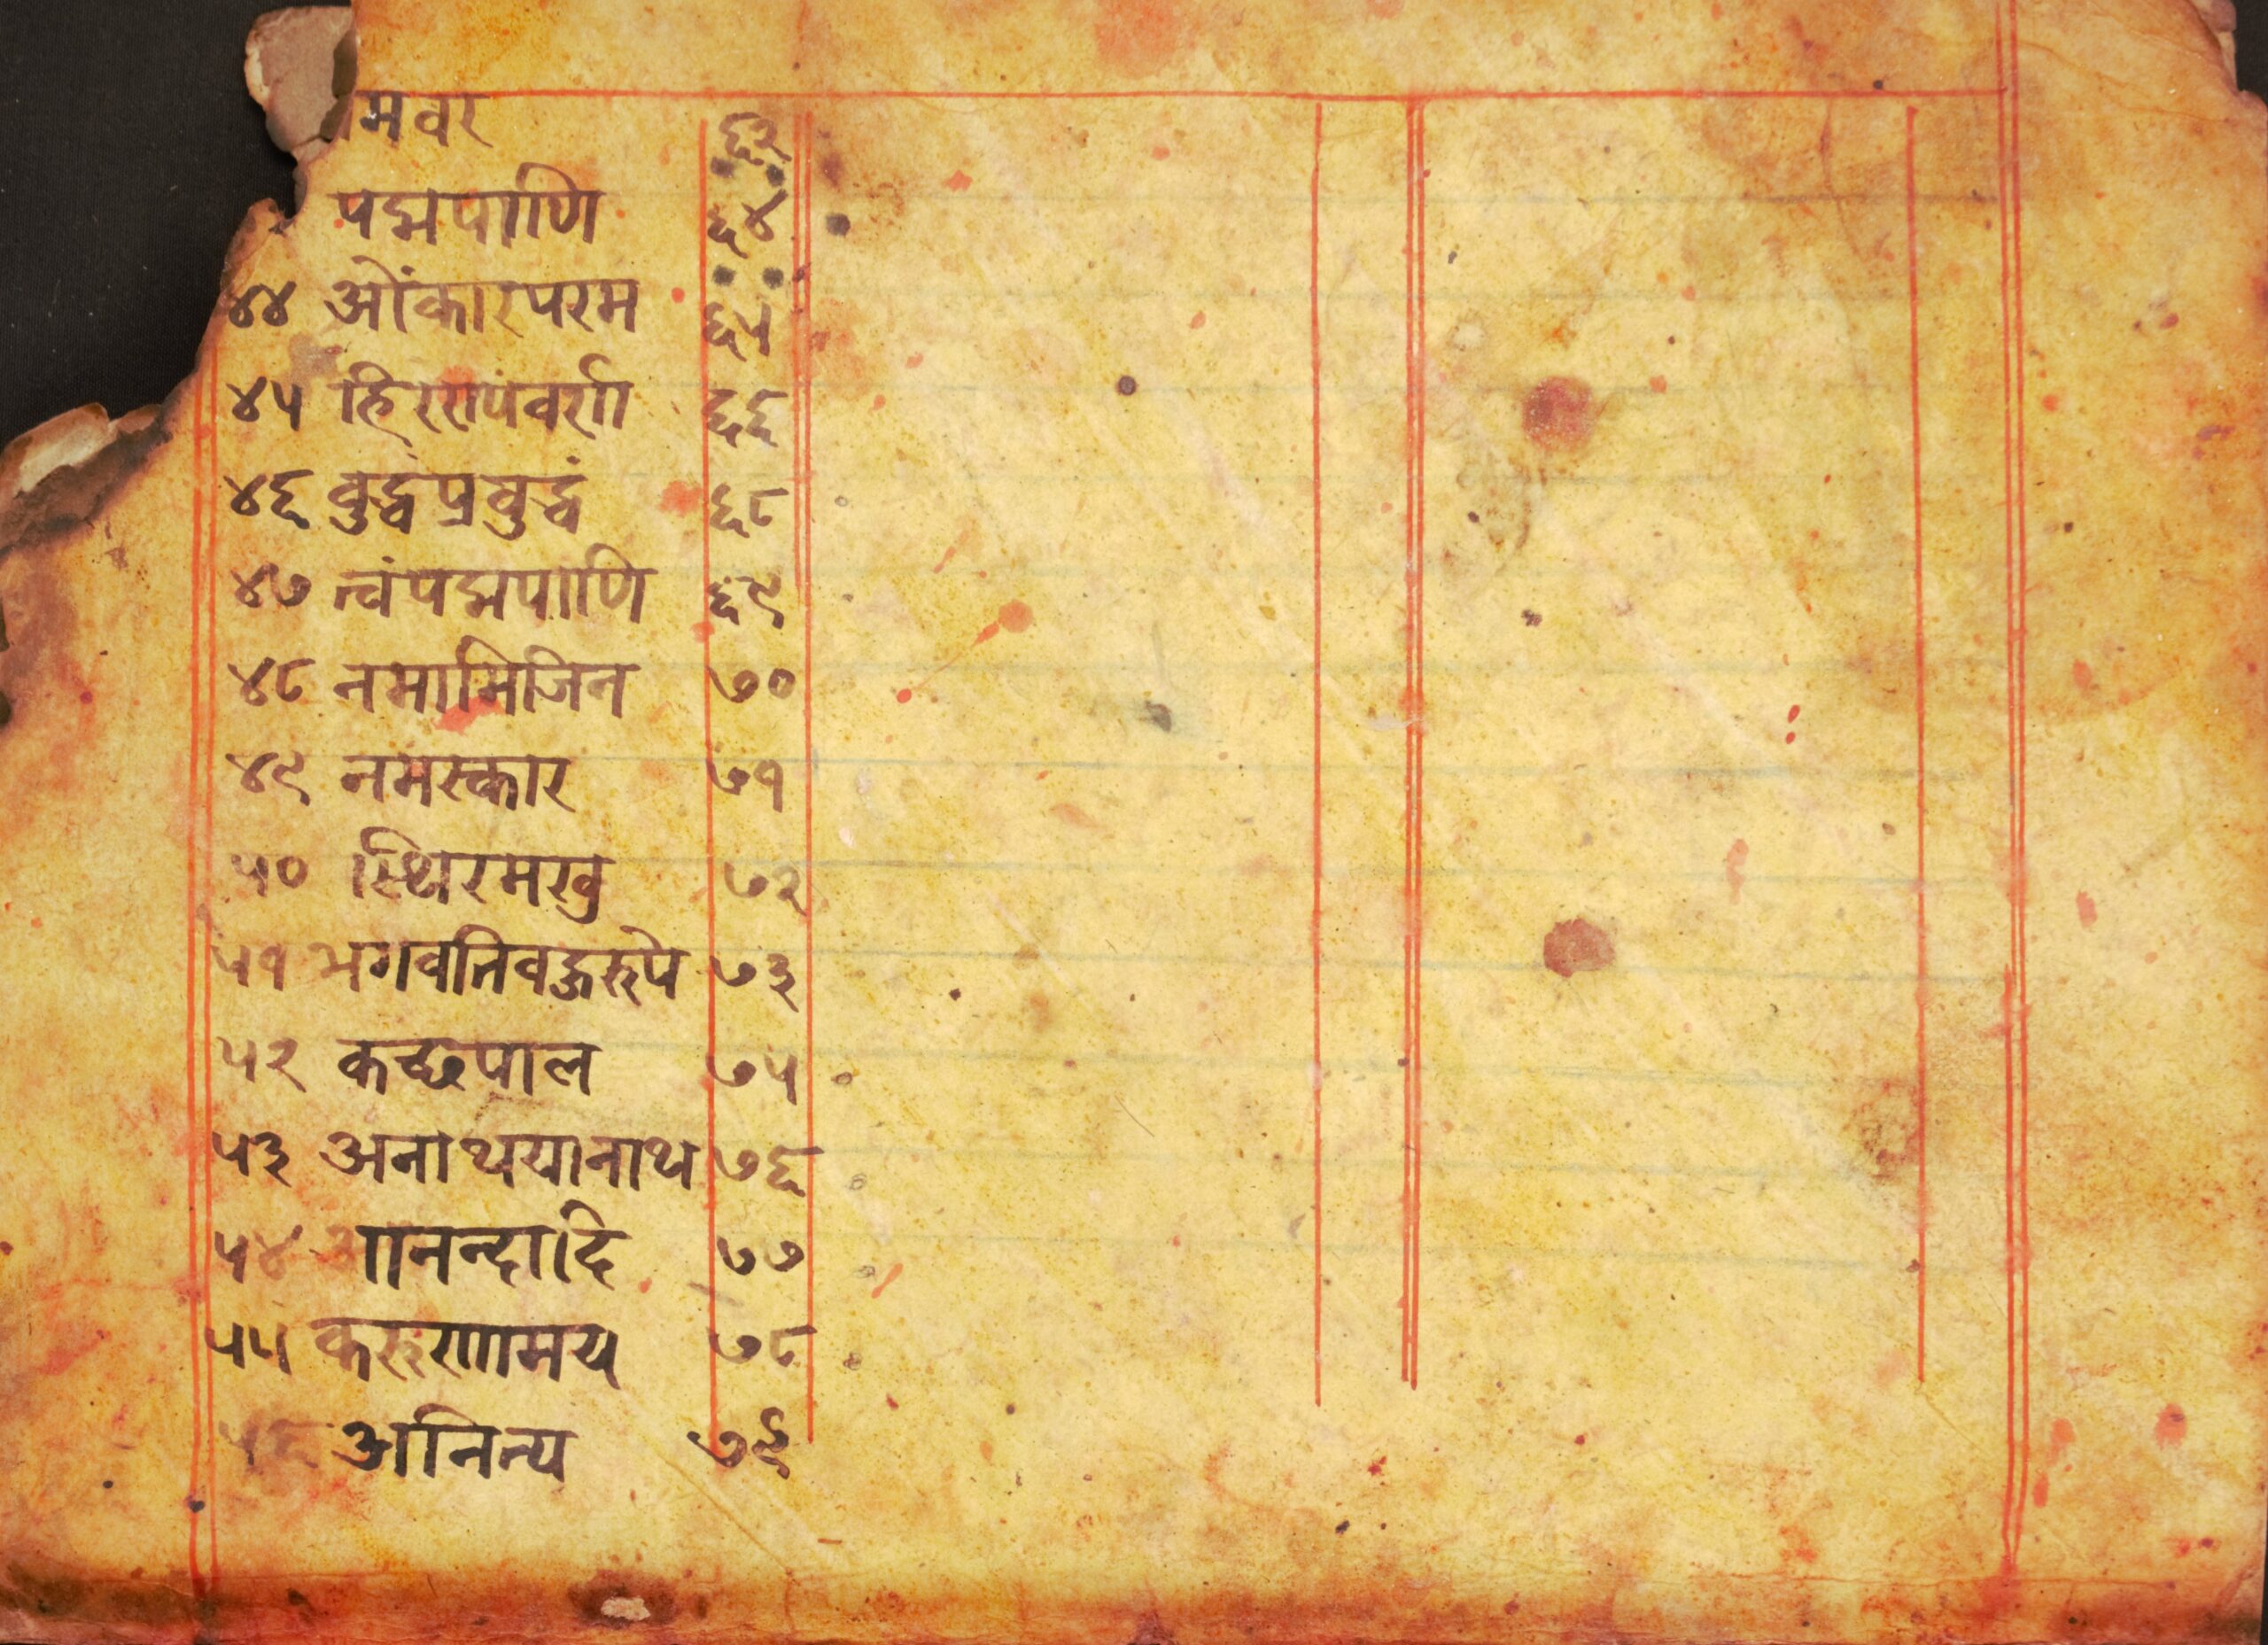 मवर ६२
पद्मपाणि ६४
४४ ओंकारपरम ६५
४५ हिररापवर्रा ६६
४६ वुद्धंप्रवुद्धं ६८
४७ त्वंपद्मपाणि ६९
४८ नमामिजिन ७०
४९ नमस्कार ७१
५० स्थिरमखु ७२
५१ भगवतिवद्धरुपे ७३
५२ कच्छपाल ७५
५३ अनाथयानाथ ७६
५४ आनन्दादि ७७
५५ करुरणामय ७८
५६ अनित्य ७९